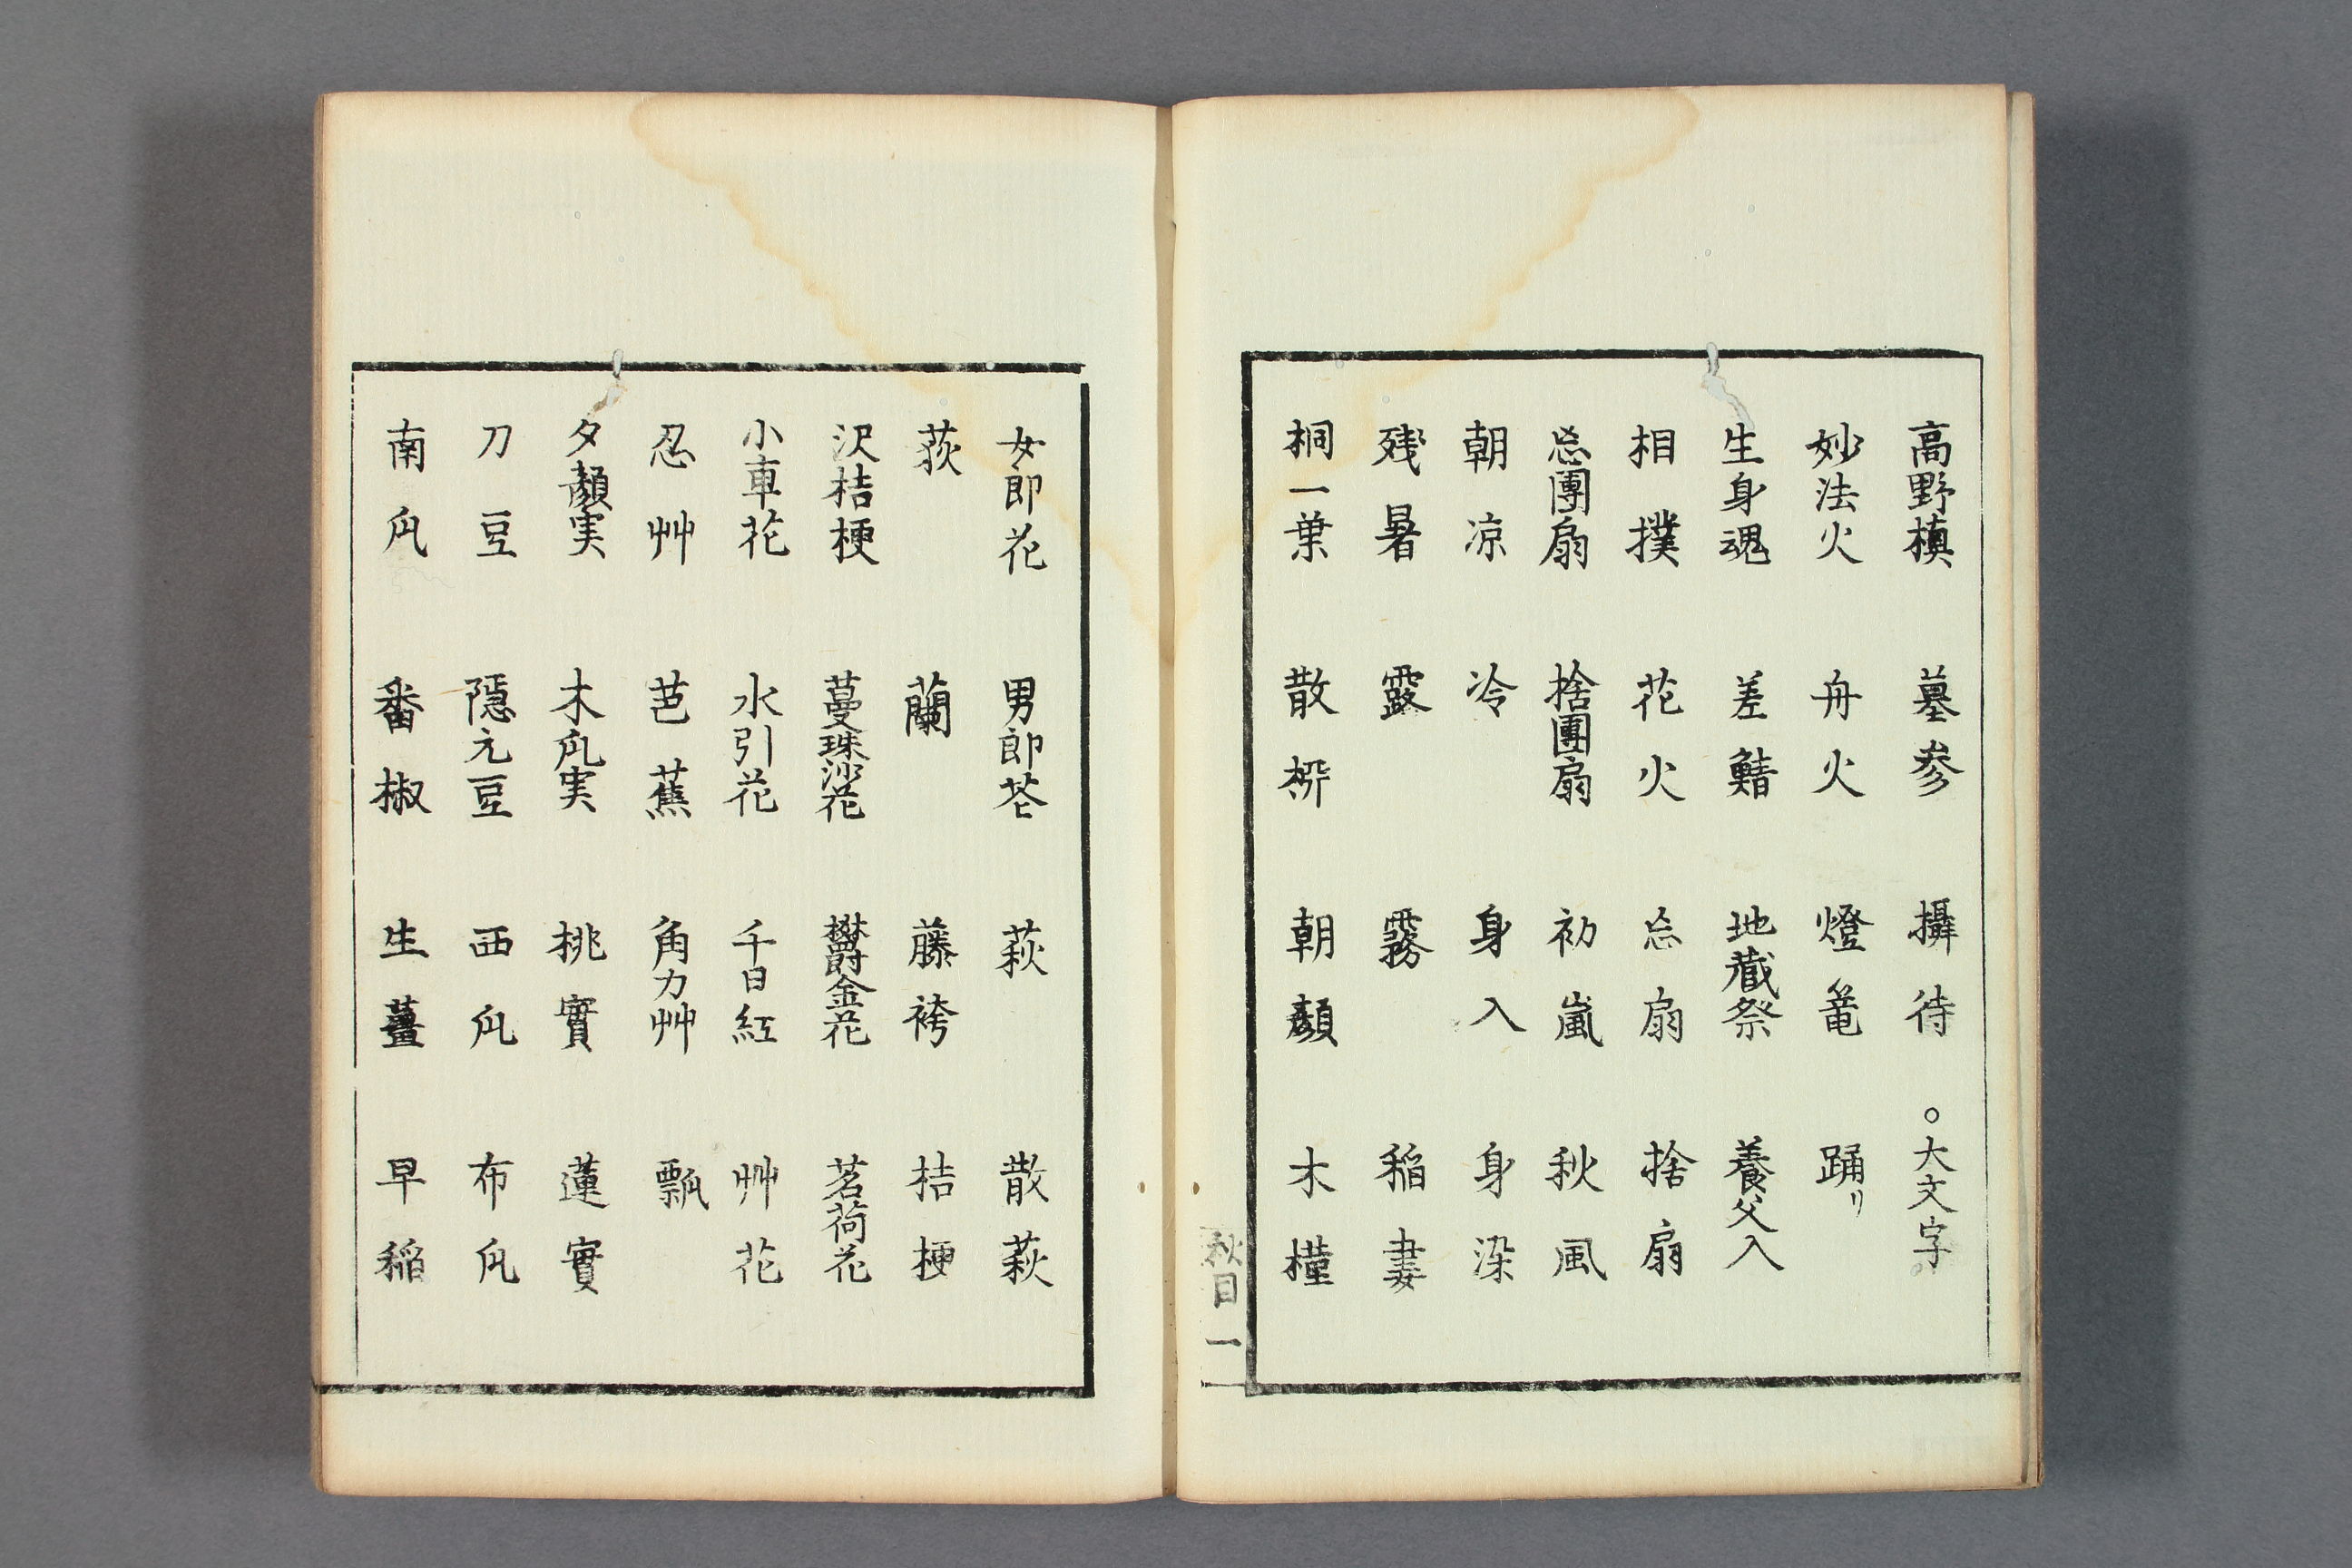 高野槙　墓参　攝待　○大文字
妙法火　舟火　燈篭　踊リ
生身魂　差鯖　地蔵祭　養父入
相撲　花火　忘扇　捨扇
忘團扇　捨團扇　初嵐　秋風
朝凉　冷　身入　身染
残暑　露　霧　稲妻
桐一葉　散柳　朝顔　木槿
秋目　一
女郎花　男郎花　萩　散萩
荻　蘭　藤袴　桔梗
沢桔梗　蔓珠沙花　欝金花　茗荷花
小車花　水引花　千日紅　艸花
忍艸　芭蕉　角力艸　瓢
夕顔実　木瓜実　桃實　蓮實
刀豆　隠元豆　西瓜　布瓜
南瓜　番椒　生薑　早稲